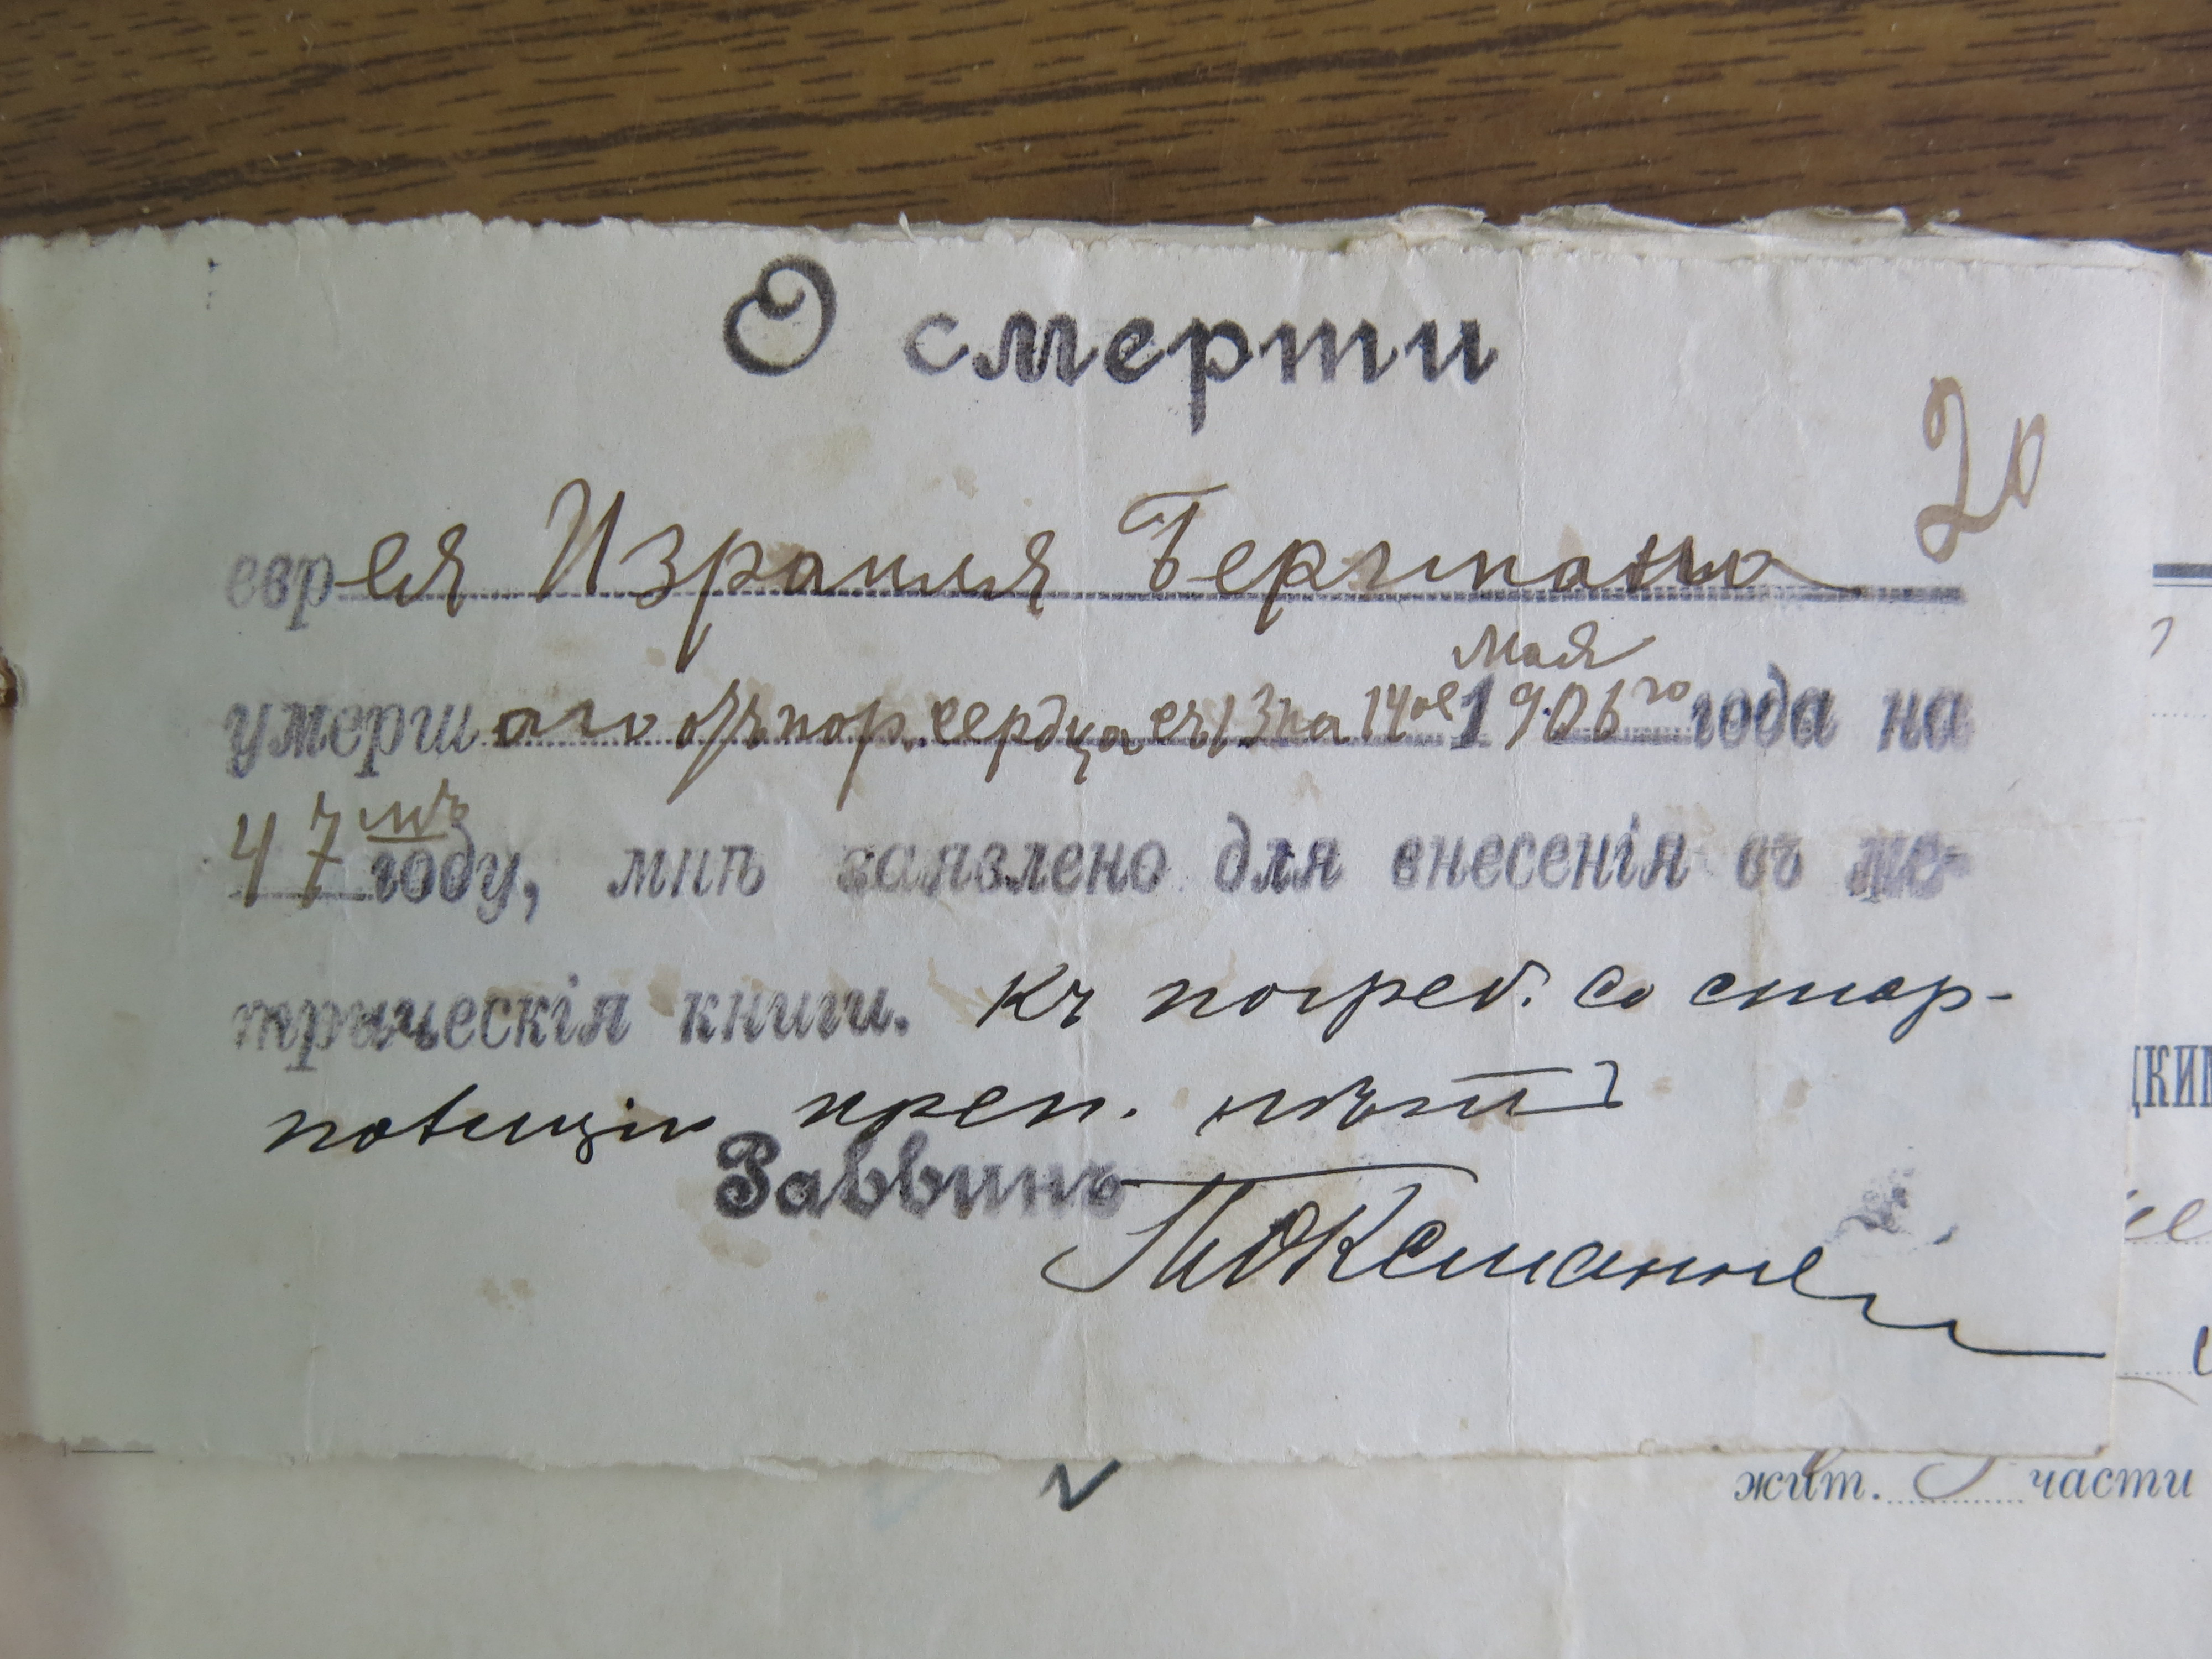 О смерти
20
еврея Израиля Бергмана
мая
умершаго отъ пор. сердца съ 13 на 14ое 1906го года на
47мъ году, мнѣ заявлено для внесенія въ ме-
трическія книги. Къ погреб. со стор-
поличіи преп. нѣтъ
Раввинъ
ДКИМ
жит. части